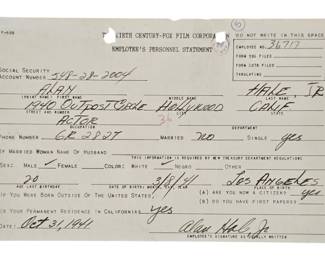 TWENTIETH CENTURY-FOX FILM CORPORATION
EMPLOYEE'S PERSONNEL STATEMENT
DO NOT WRITE IN THIS SPACE
EMPLOYEE NO. 36717
FORM 206 FILES
FORM 207 FILES
TABULATING
SOCIAL SECURITY
ACCOUNT NUMBER 548-28-2004
ALAN HALE, JR
(PRINT NAME) FIRST NAME MIDDLE LAST NAME
1940 OUTPOST CIRCLE HOLLYWOOD CALIF
STREET AND NUMBER CITY STATE
ACTOR 36
OCCUPATION DEPARTMENT
PHONE NUMBER GR 2827 MARRIED NO SINGLE yes
IF MARRIED WOMAN NAME OF HUSBAND
THIS INFORMATION IS REQUIRED BY NEW TREASURY DEPARTMENT REGULATIONS
SEX: MALE ✓ FEMALE COLOR: WHITE ✓ NEGRO OTHER
20 3/8/21 LOS ANGELES
AGE LAST BIRTHDAY DATE OF BIRTH: PLACE OF BIRTH
IF YOU WERE BORN OUTSIDE OF THE UNITED STATES, (A) ARE YOU NOW A CITIZEN? yes
(B) DO YOU HAVE FIRST PAPERS?
IS YOUR PERMANENT RESIDENCE IN CALIFORNIA? yes
DATE Oct 31, 1941 Alan Hale Jr
EMPLOYEE'S SIGNATURE AS USUALLY WRITTEN